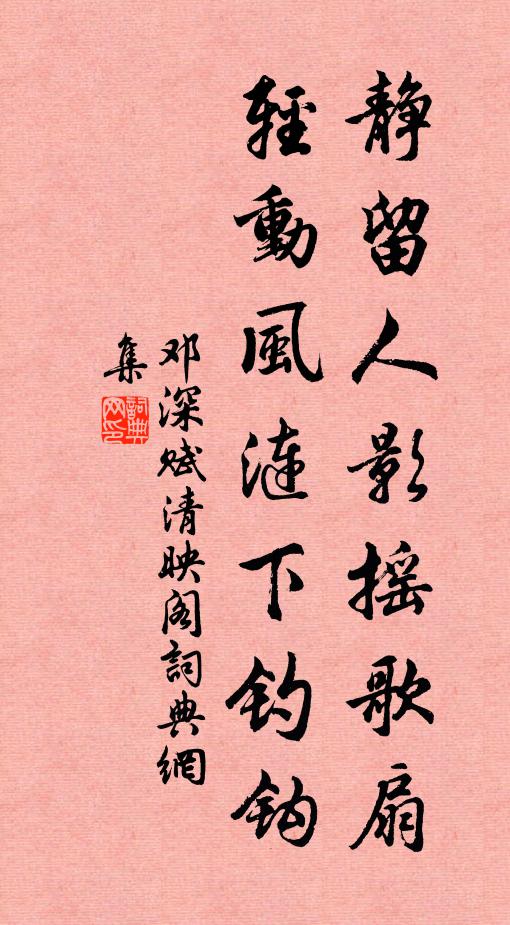 静留人影摇歌扇
輕動風漣下钓鈎
邓深赋清映阁詞典網
集
詞典網印